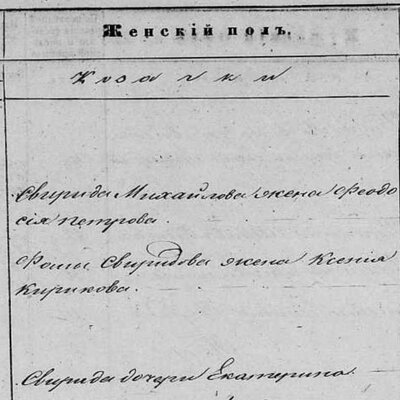 Женскій полъ.
Козачки
Свирида Михайлова жена Феодо
сія Петрова.
Фомы Свиридова жена Ксенія
Кирикова.
Свирида дочери Екатерина.